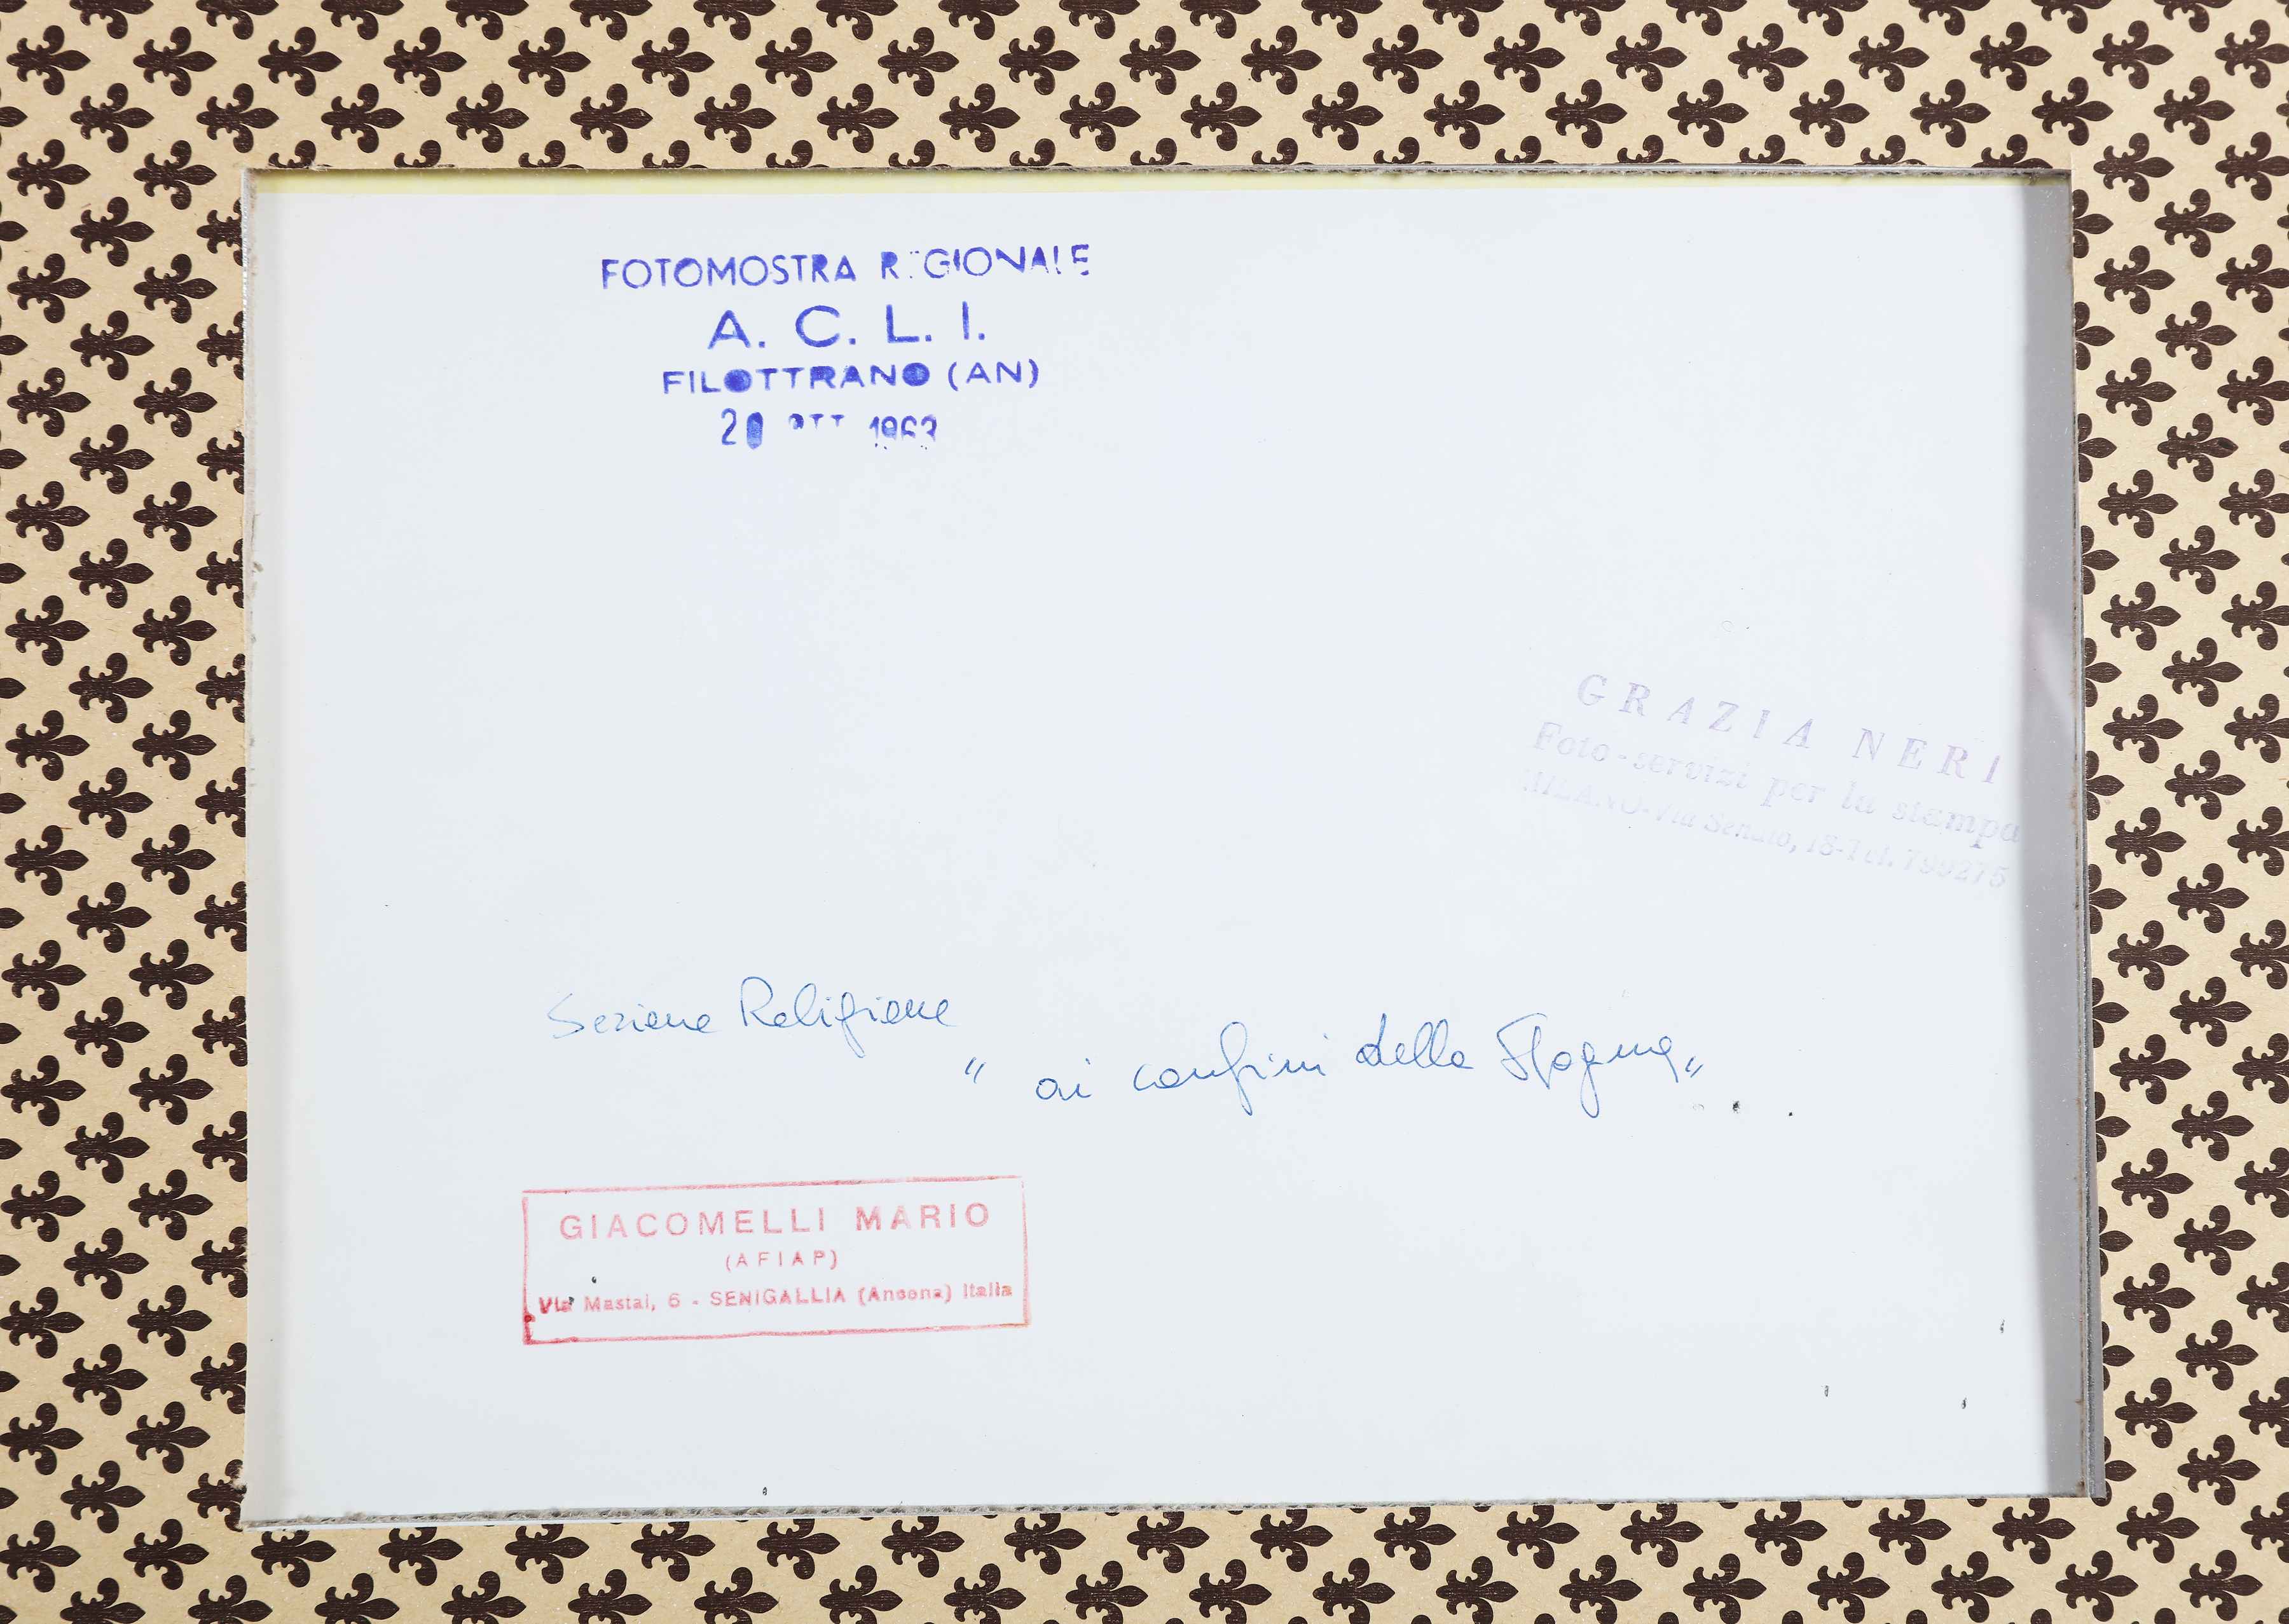 FOTOMOSTRA REGIONALE
A. C. L. I.
FILOTTRANO (AN)
20 OTT 1963
GRAZIA NERI
Foto-servizi per la stampa
MILANO-Via Senato, 18-Tel. 799275
Sezione Religione
" ai confini della
GIACOMELLI MARIO
(AFIAP)
Via Mastai, 6 - SENIGALLIA (Ancona) Italia